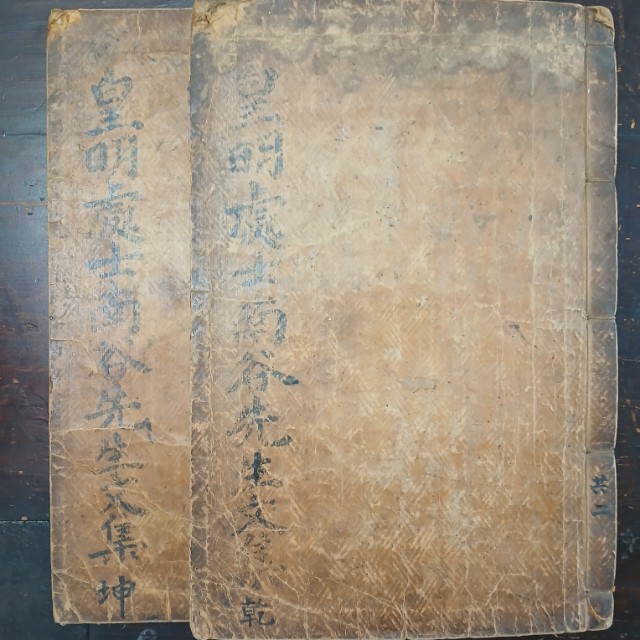 共二
皇明處士谷先生文集 乾
皇明處士谷先生文集 坤